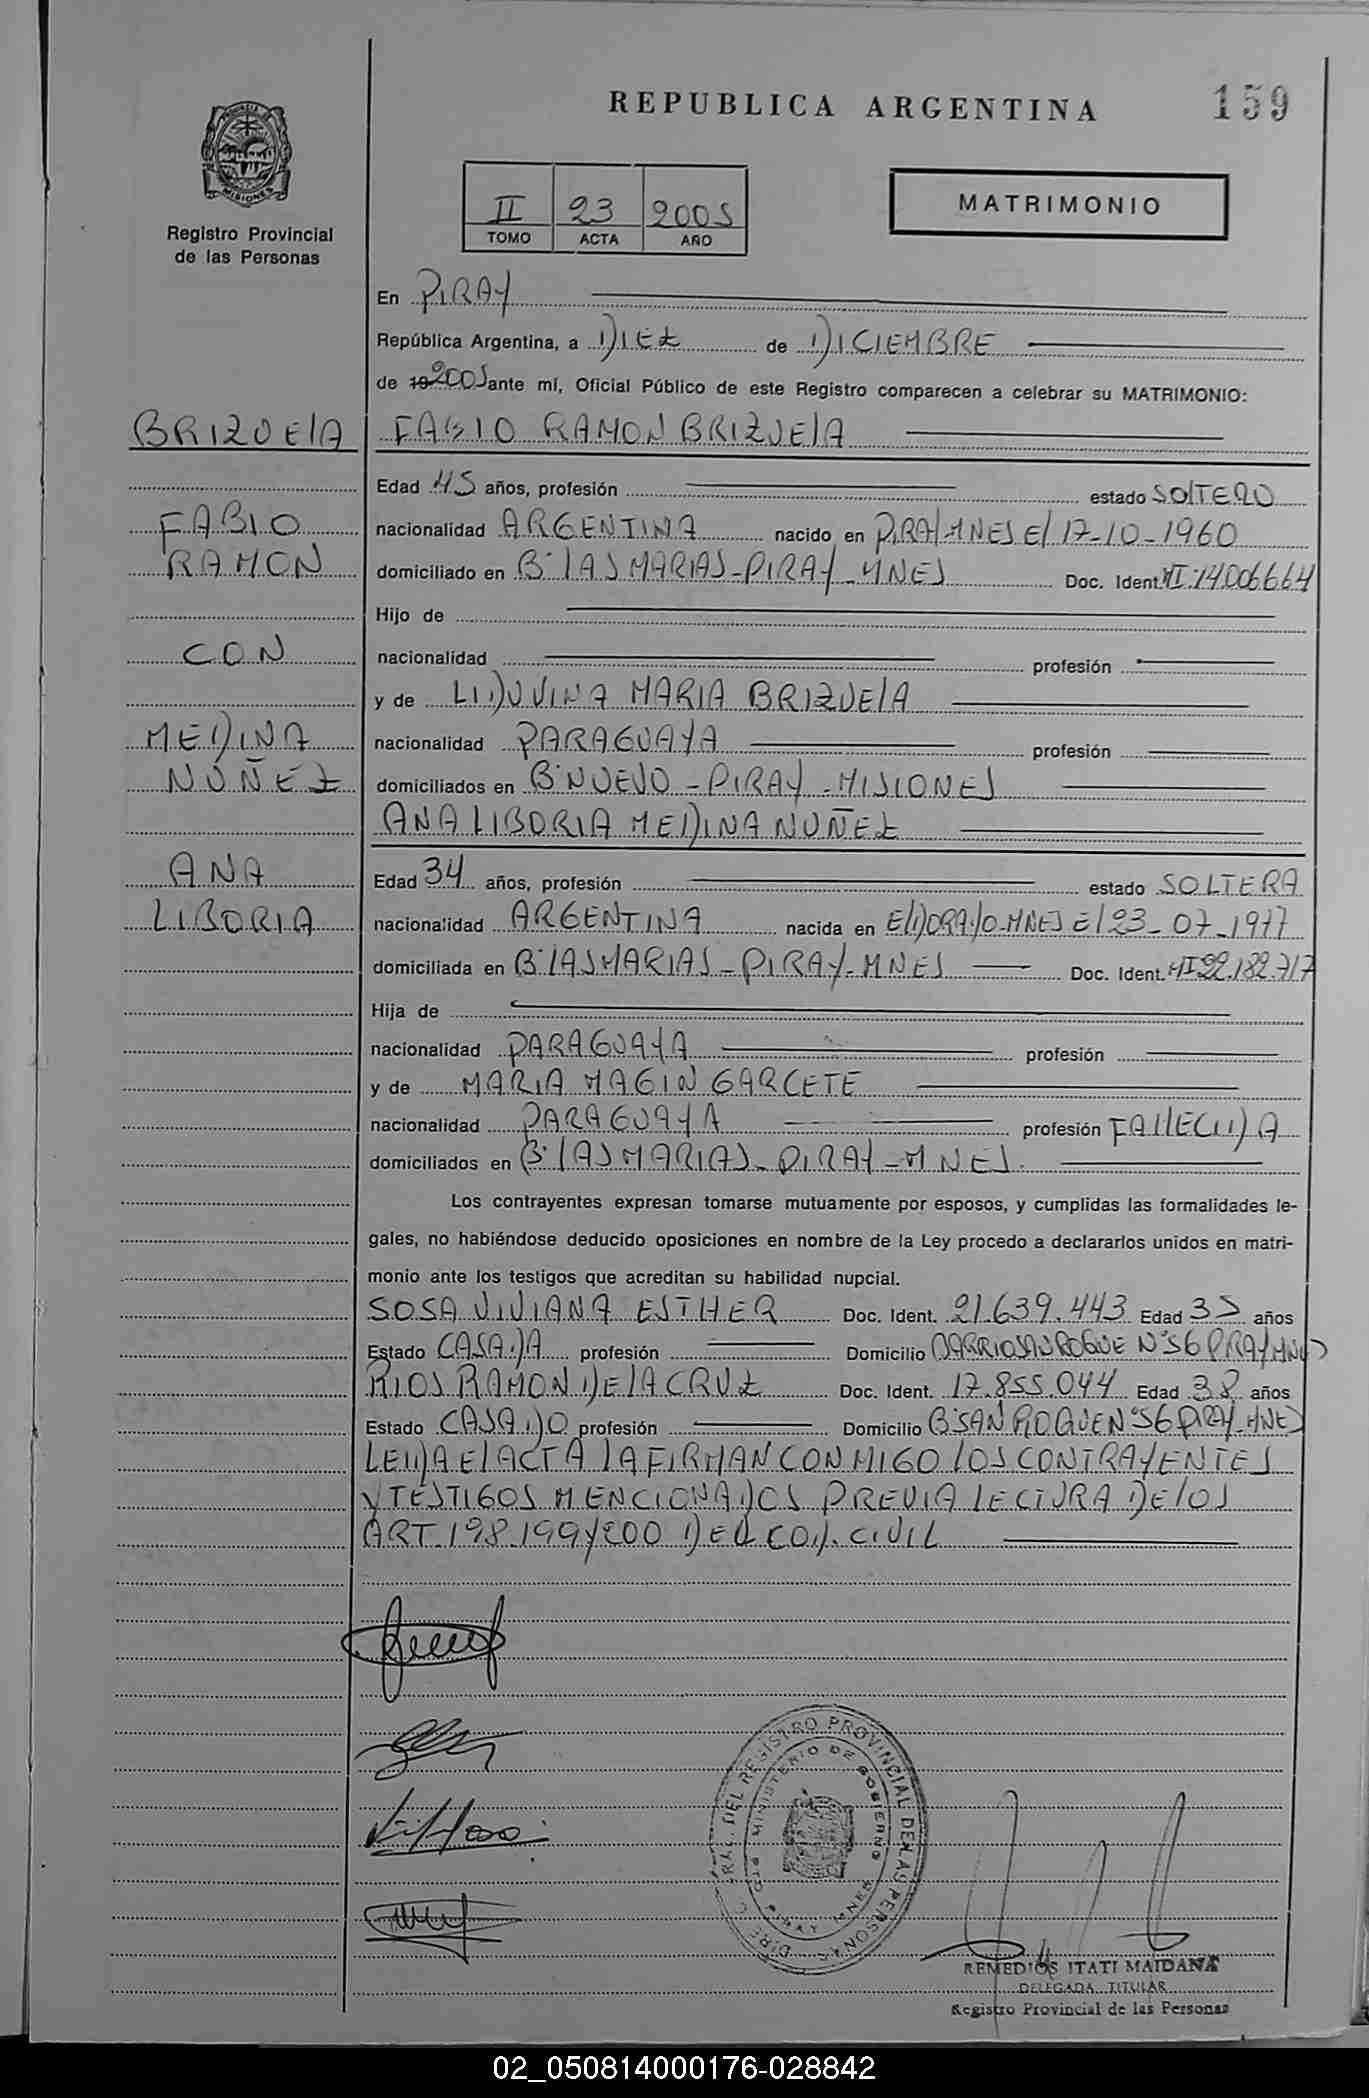 REPUBLICA ARGENTINA
159
PROVINCIA DE MISIONES
Registro Provincial
de las Personas
II 23 2005
TOMO ACTA AÑO
MATRIMONIO
En PIRAY
República Argentina, a DIEZ de DICIEMBRE
de 19 2005 ante mí, Oficial Público de este Registro comparecen a celebrar su MATRIMONIO:
BRIZUELA
FABIO RAMON BRIZUELA
Edad 45 años, profesión estado SOLTERO
FABIO
nacionalidad ARGENTINA nacido en PIRAY MNES El 17-10-1960
RAMON
domiciliado en B° LAS MARIAS-PIRAY-MNES Doc. Ident. MI:14.006.664
Hijo de
CON
nacionalidad profesión
y de LIDUVINA MARIA BRIZUELA
MEDINA
nacionalidad PARAGUAYA profesión
NUÑEZ
domiciliados en B° NUEVO-PIRAY-MISIONES
ANA LIBORIA MEDINA NUÑEZ
ANA
Edad 34 años, profesión estado SOLTERA
LIBORIA
nacionalidad ARGENTINA nacida en ELDORADO-MNES El 23-07-1971
domiciliada en B° LAS MARIAS-PIRAY-MNES Doc. Ident. MI 22.182.717
Hija de
nacionalidad PARAGUAYA profesión
y de MARIA MAGIN GARCETE
nacionalidad PARAGUAYA profesión FALLECIDA
domiciliados en B° LAS MARIAS-PIRAY-MNES.
Los contrayentes expresan tomarse mutuamente por esposos, y cumplidas las formalidades le-
gales, no habiéndose deducido oposiciones en nombre de la Ley procedo a declararlos unidos en matri-
monio ante los testigos que acreditan su habilidad nupcial.
SOSA VIVIANA ESTHER Doc. Ident. 21.639.443 Edad 35 años
Estado CASADA profesión Domicilio BARRIO SAN ROQUE N°56 PIRAY MNES
RIOS RAMON DE LA CRUZ Doc. Ident. 17.855.044 Edad 38 años
Estado CASADO profesión Domicilio B° SAN ROQUE N°56 PIRAY-MNES
LEIDA EL ACTA LA FIRMAN CONMIGO LOS CONTRAYENTES
Y TESTIGOS MENCIONADOS PREVIA LECTURA DE LOS
ART. 198.199 Y 200 DEL COD. CIVIL
REGISTRO PROVINCIAL DE LAS PERSONAS
MINISTERIO DE GOBIERNO
PIRAY MNES
REMEDIOS ITATI MAIDANA
DELEGADA TITULAR
Registro Provincial de las Personas
02_050814000176-028842